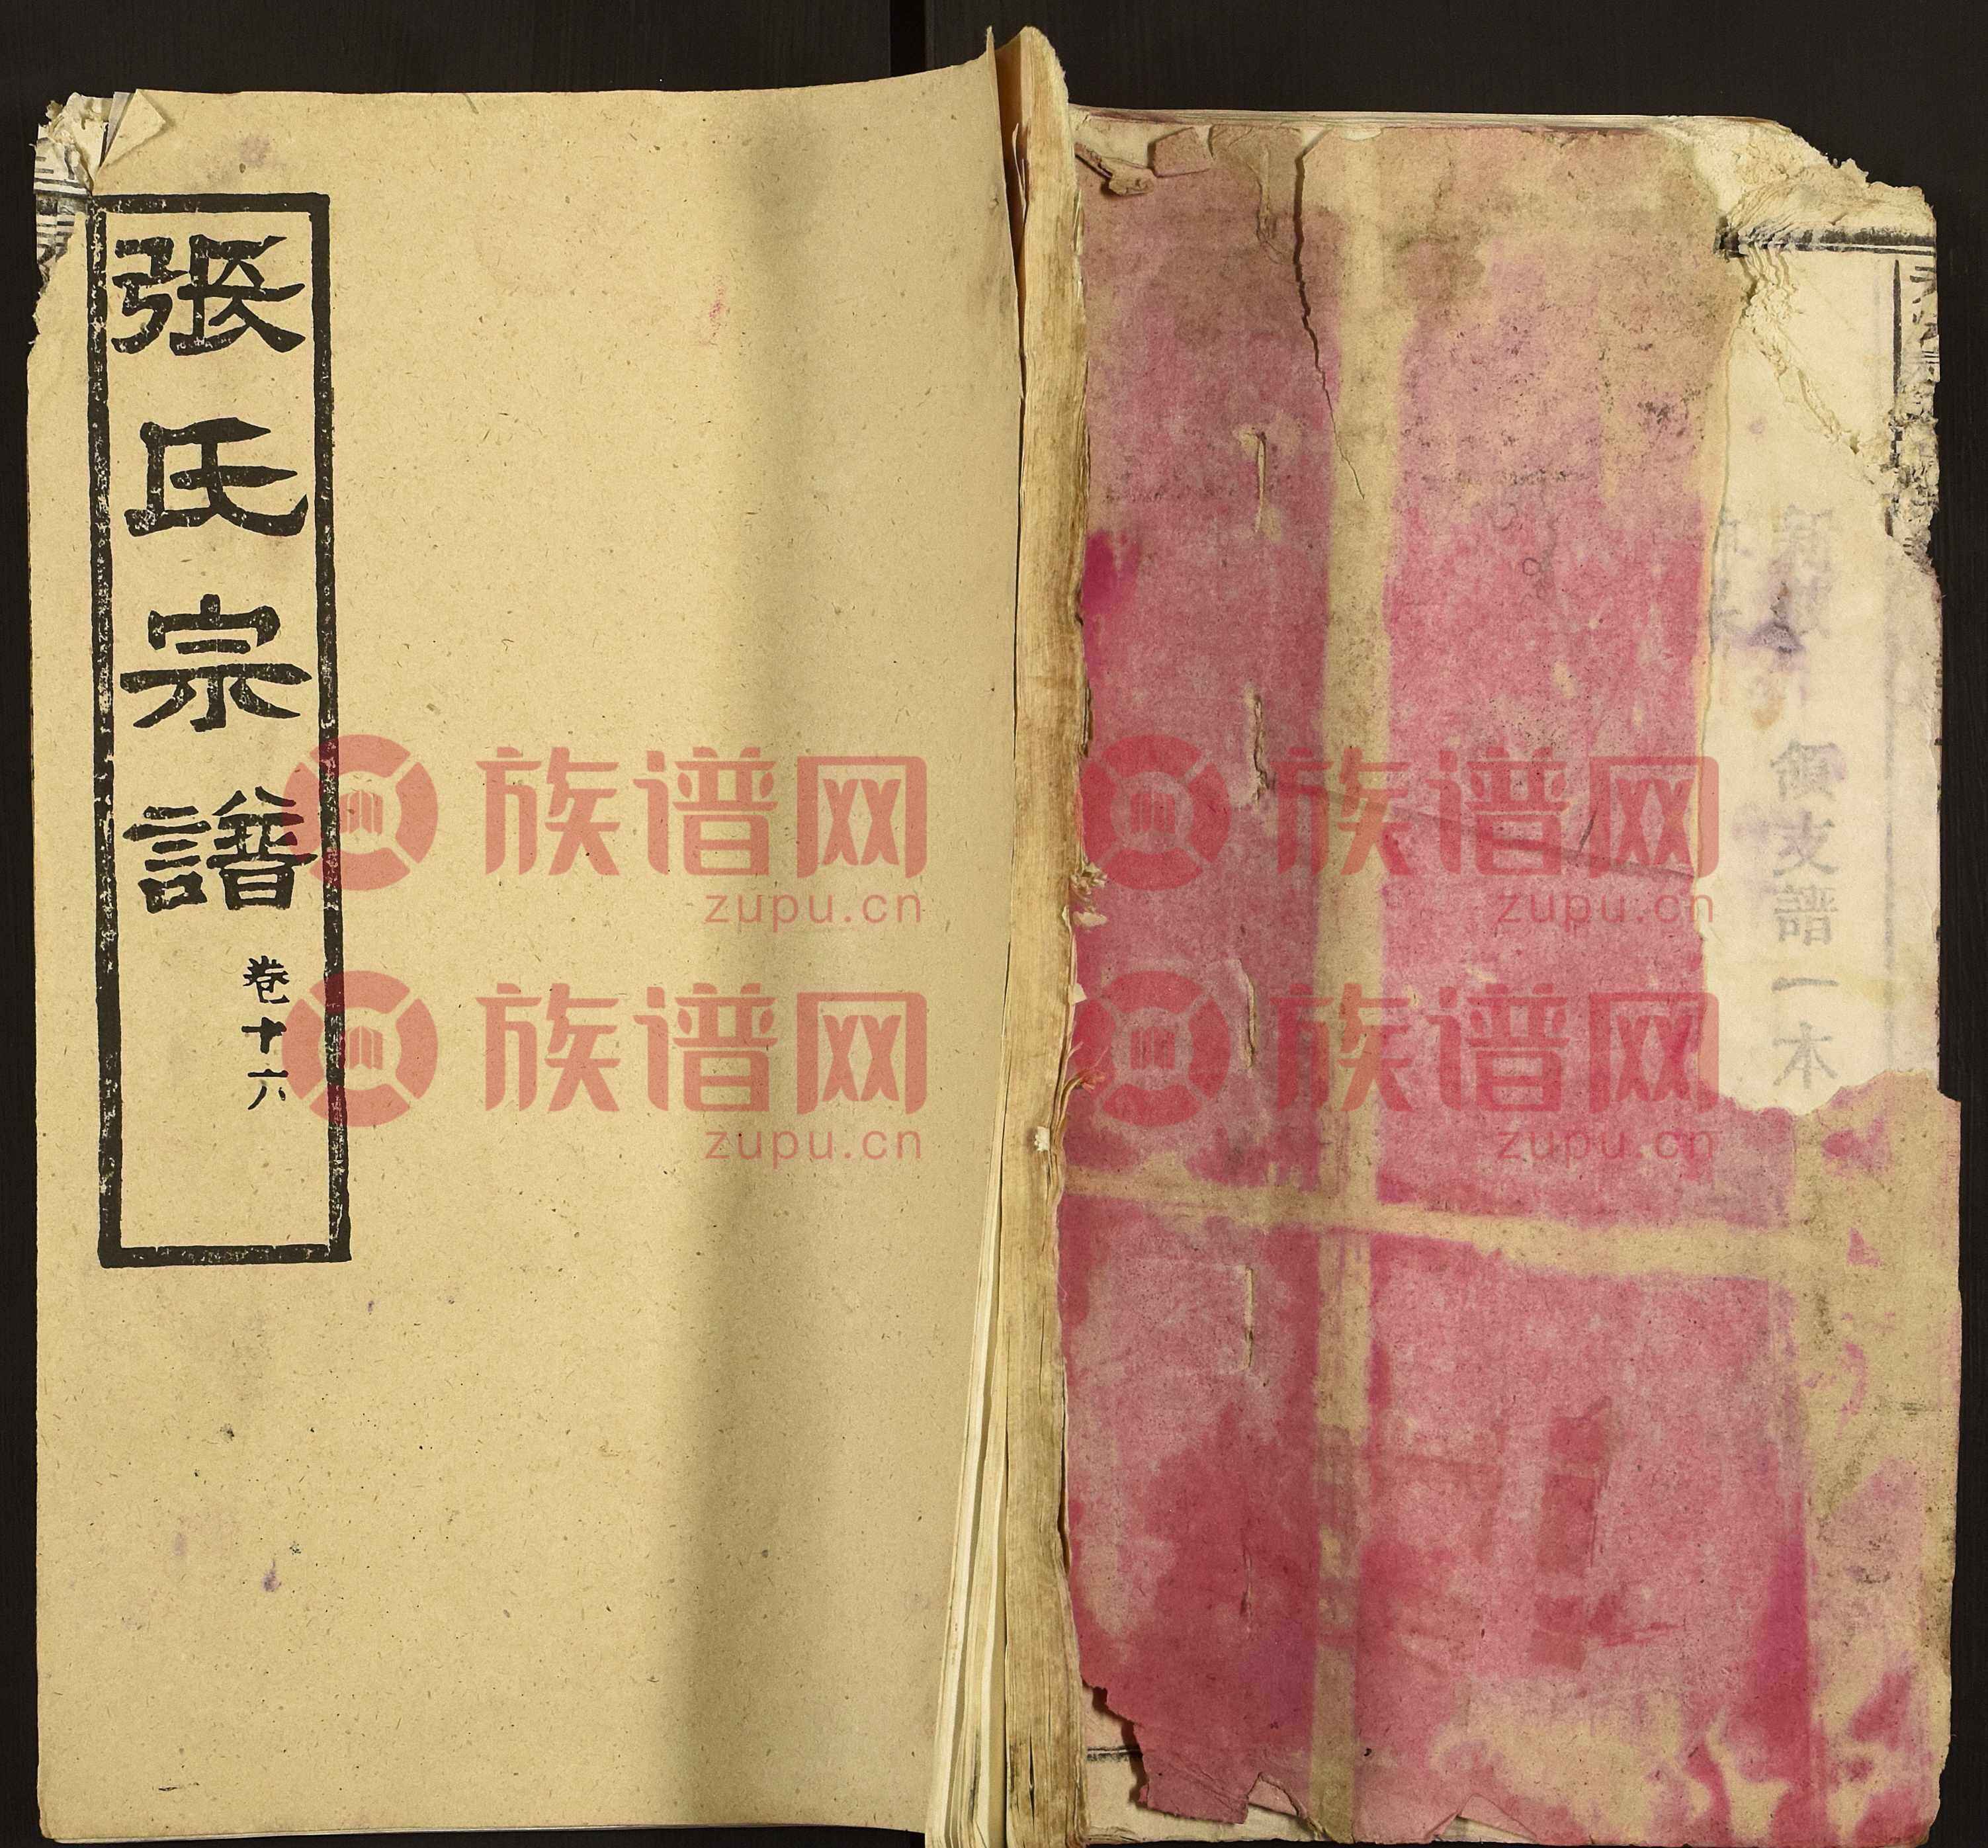 張氏宗譜
卷十六
領支譜一本
族谱网
zupu.cn
族谱网
zupu.cn
族谱网
zupu.cn
族谱网
zupu.cn